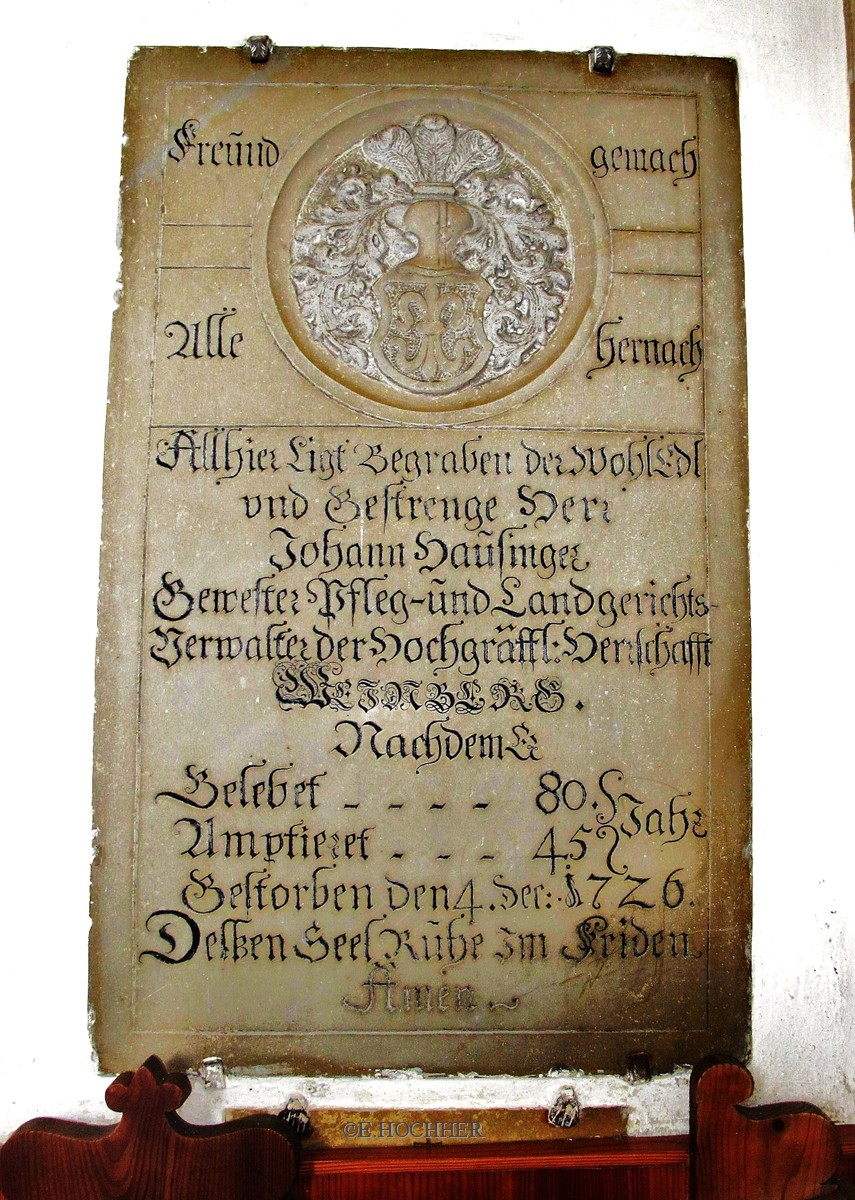 Freünd gemach
Alle hernach
Allhier Ligt Begraben der WohlEdl
vnd Gestrenge Herr
Johann Haüsinger
Gewester Pfleg-ünd Landgerichts-
Verwalter der Hochgräffl: Herrschafft
WEINBERG.
Nachdem Er
Gelebet - - - - 80. Jahr
Amptieret - - - 45
Gestorben den 4. Dec: 1726.
Deßen Seel Rühe Im Friden
Amen
©E.HOCHHER